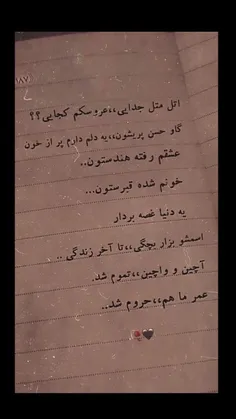 ۱۸۷
اتل متل جدایی،،عروسکم کجایی؟؟
گاو حسن پریشون،،یه دلم دارم پر از خون
عشقم رفته هندستون..
خونم شده قبرستون...
یه دنیا غصه بردار
اسمشو بزار بچگی،،تا آخر زندگی ..
آچین و واچین،،تموم شد.
عمر ما هم،،حروم شد..